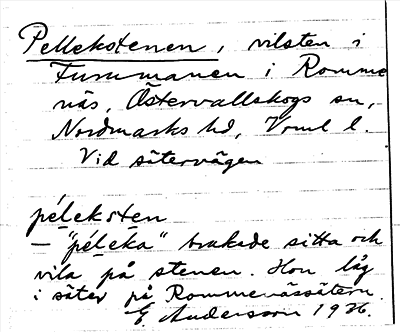 Pellekstenen, vilsten i
Furumanen i Romme
näs, Östervallskogs sn,
Nordmarks hd, Vrml l.
Vid sätervägen
péleksten
– "péleka" brukade sitta och
vila på stenen. Hon låg
i säter på Rommenässätern.
E Andersson 1936.